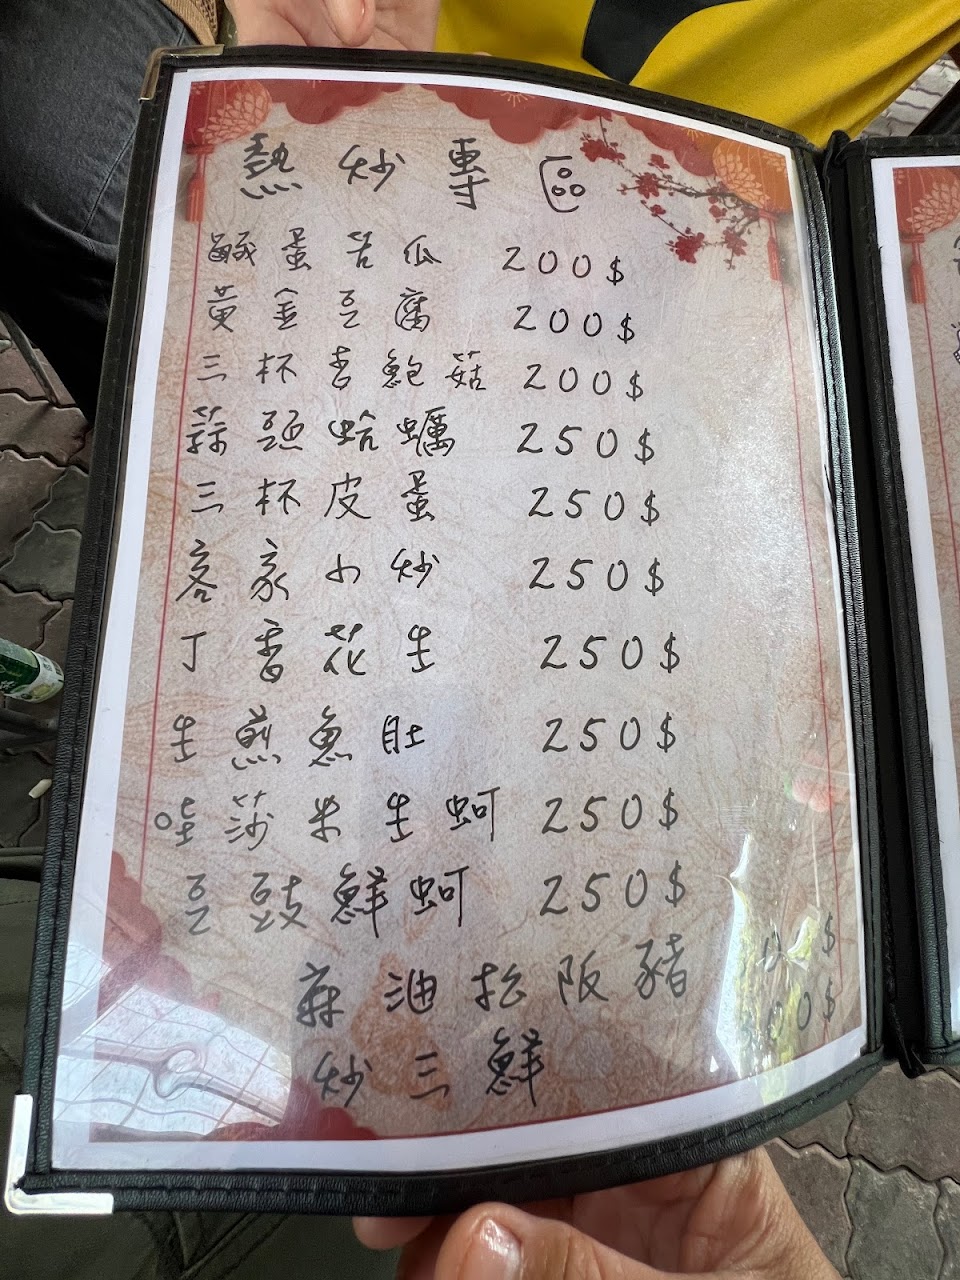 熱炒專區
鹹蛋苦瓜 200$
黃金豆腐 200$
三杯杏鮑菇 200$
蒜頭蛤蠣 250$
三杯皮蛋 250$
客家小炒 250$
丁香花生 250$
生煎魚肚 250$
哇莎米生蚵 250$
豆豉鮮蚵 250$
麻油松阪豬 $
炒三鮮 00$